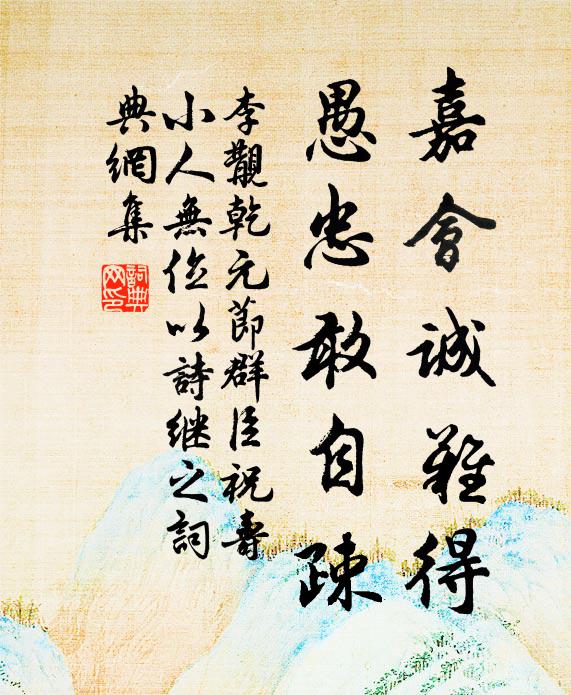 嘉會誠難得
愚忠敢自疎
李覯乾元節群臣祝壽
小人無位以詩继之詞
典網集
詞典
网印